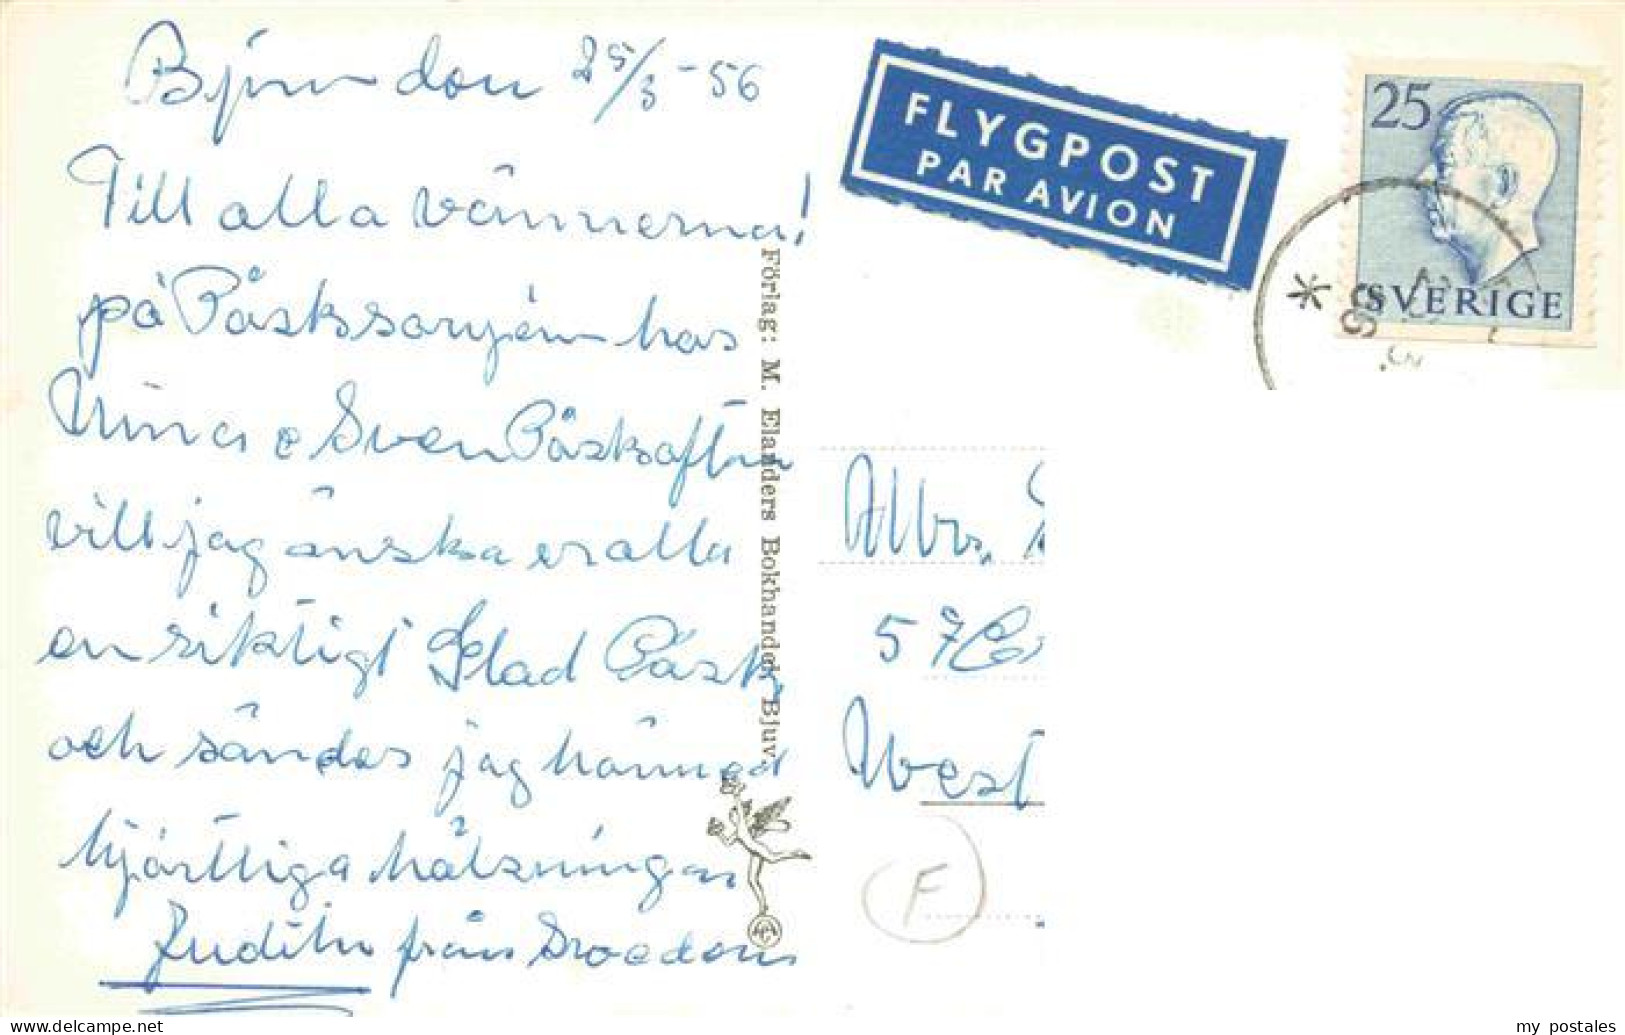 Bjuv den 25/3-56
Till alla vännerna!
på Påsksorgén hos
Nina o Sven Påskafton
vill jag önska er alla
en riktigt Glad Påsk,
och sändes jag härmed
hjärtliga hälsningar
Judith från Swedens
Förlag: M. Elanders Bokhandel, Bjuv.
FLYGPOST
PAR AVION
25
SVERIGE
Mrs.
57
West
F
my postales
www.delcampe.net